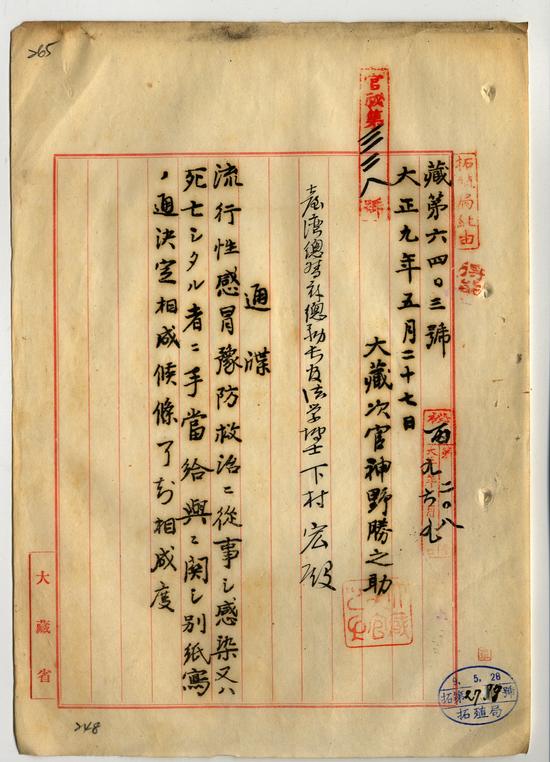 265
官祕第三三二八號
拓殖局經由
藏第六四〇三號
大正九年五月二十七日
大藏次官神野勝之助
臺灣總督府總務長官法学博士下村宏殿
通牒
流行性感冒豫防救治ニ從事シ感染又ハ
死亡シタル者ニ手當給與ニ関シ別紙寫
ノ通決定相成候條了知相成度
大藏省
9.5.28
拓第2789號
拓殖局
248